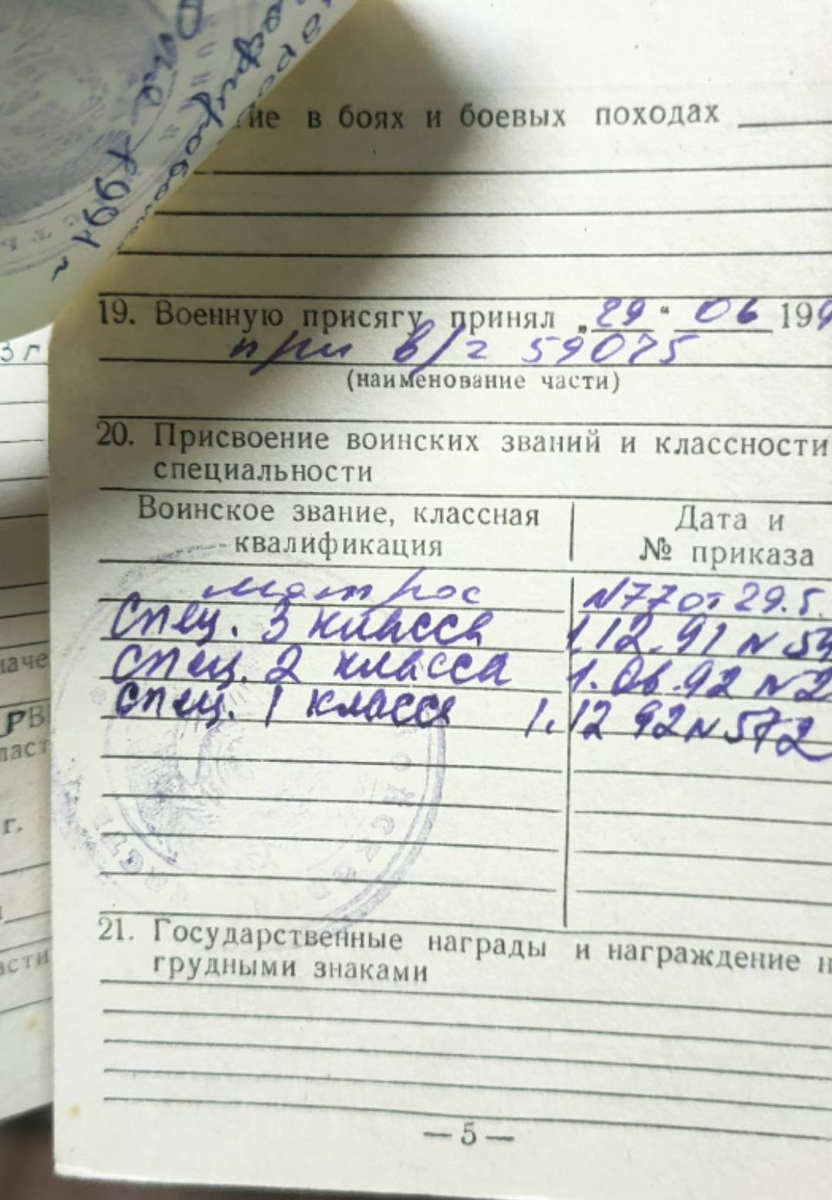 в боях и боевых походах
19. Военную присягу принял „29“ 06 199
при в/ч 59075
(наименование части)
20. Присвоение воинских званий и классности
специальности
Воинское звание, классная
квалификация
Дата и
№ приказа
матрос №77 от 29.5.
Спец. 3 класса 1.12.91 №
Спец. 2 класса 1.06.92 №2
Спец. 1 класса 1.12 92 № 572
21. Государственные награды и награждение н
грудными знаками
— 5 —